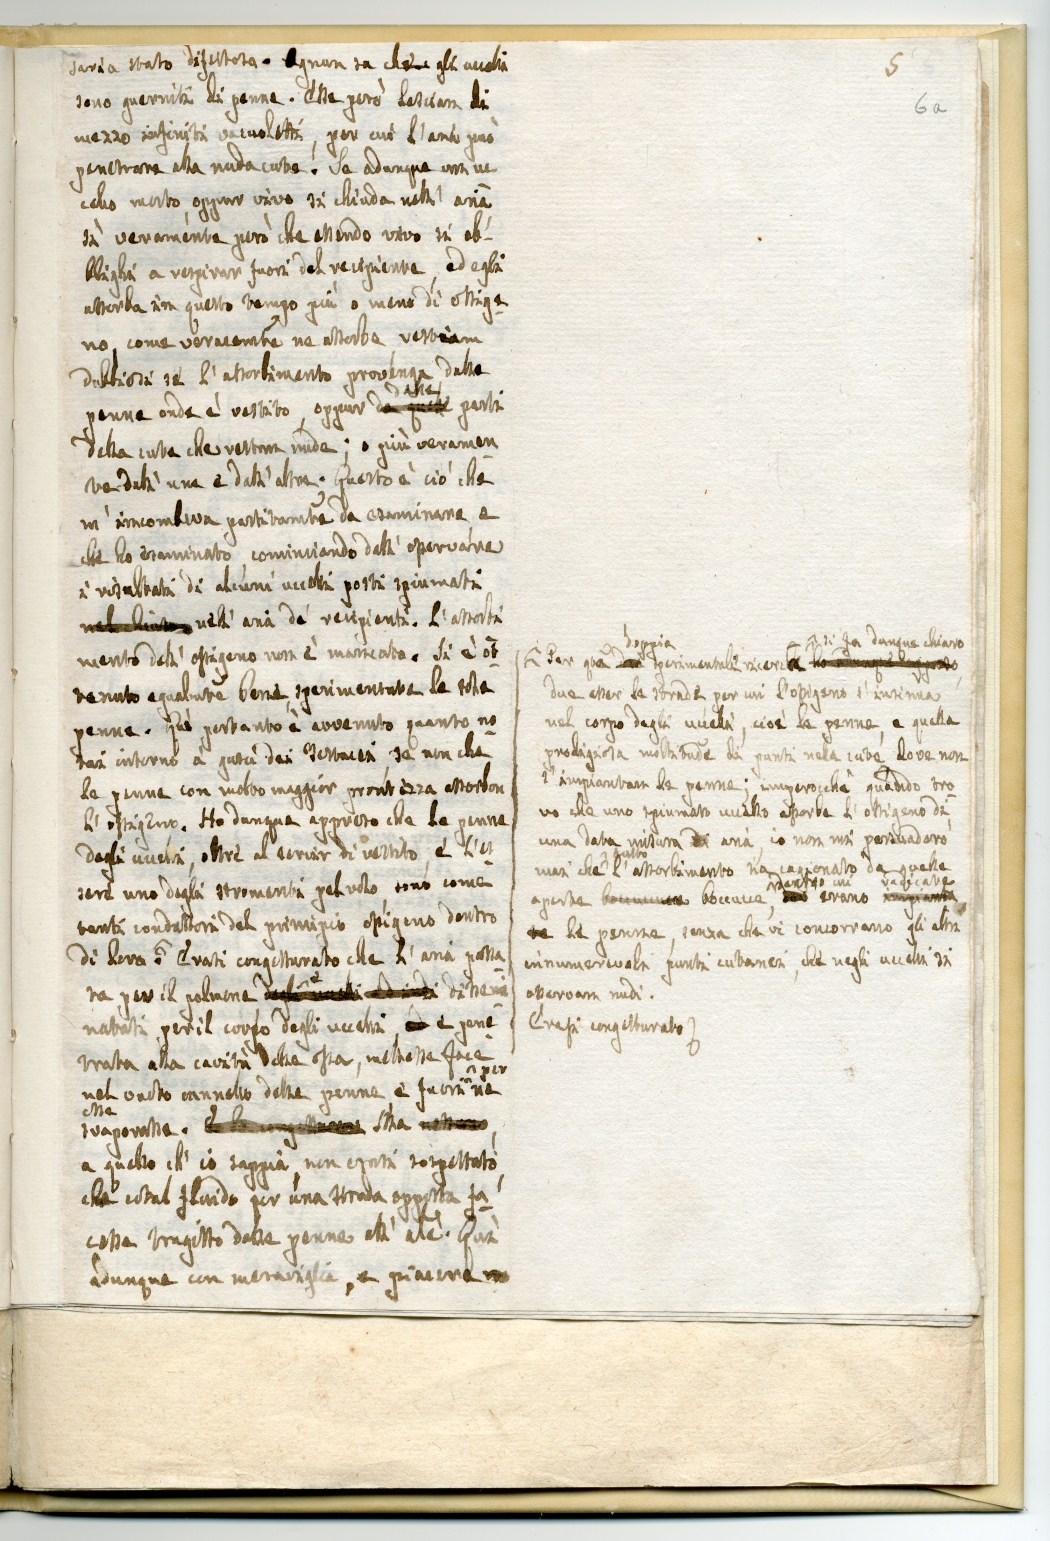 5
6a
saria stato difettosa. Ognun sa che gli uccelli
sono guerniti di penne. Esse però lasciam di
mezzo infiniti vacuoletti, per cui l'aria può
penetrare alla nuda cute. Se adunque un uc
cello morto, oppur vivo si chiuda nell' aria
sì veramente però che essendo vivo si ob-
blighi a respirar fuori del recipiente, ed egli
assorba in questo tempo più o meno di ossige-
no, come veracemte ne assorbe restiam
dubbiosi se l'assorbimento provenga dalle
penne onde è vestito, oppur dalle parti
della cute che restan nude; o più veramen
te dall' une e dall' altre. Questo è ciò che
m' incombeva partitamte da esaminare, e
che ho esaminato cominciando dall' osservare
i risultati di alcuni uccelli posti spiumati
nell' aria de' recipienti. L' assorbi
mento dell' ossigeno non è mancato. Si è ot
tenuto egualmte bene, sperimentate le sole
penne. Quì pertanto è avvenuto quanto no
tai intorno a' gusci dei testacei se non che
le penne con molto maggior prontezza assorbon
l' ossigeno. Ho dunque appreso che le penne
degli uccelli, oltre al servir di vestito, e l'es
sere uno degli stromenti pel volo sono come
tanti conduttori del principio ossigeno dentro
di loro Erasi congetturato che l' aria passa
ta per il polmone degli uccelli ed indi disemi
natasi per il corpo degli uccelli e pene
trata alla cavità delle ossa, mettesse face
nel vuoto cannello delle penne, e fuori per
esse
svaporasse.
a quello ch' io sappia, non erasi sospettato,
che cotal fluido per una strada opposta fa
cesse tragitto dalle penne all' ale. Quì
adunque con meraviglia, e piacere
doppia si fa dunque chiaro
Per qta sperimentale ricerca
due esser le strade per cui l'ossigeno s'insinua
nel corpo degli uccelli, cioè le penne, e quella
prodigiosa moltitudne di punti nella cute, dove non
s'impiantan le penne; imperocchè quando tro
vo che uno spiumato uccello assorbe l' ossigeno di
una data misura di aria, io non mi persuaderò
mai che tutto l'assorbimento sia cagionato da quelle
aperte boccucce, dentro cui erano radicate
le penne, senza che vi concorrano gli altri
innumerevoli punti cutanei, che negli uccelli si
osservan nudi.
Erasi congetturato